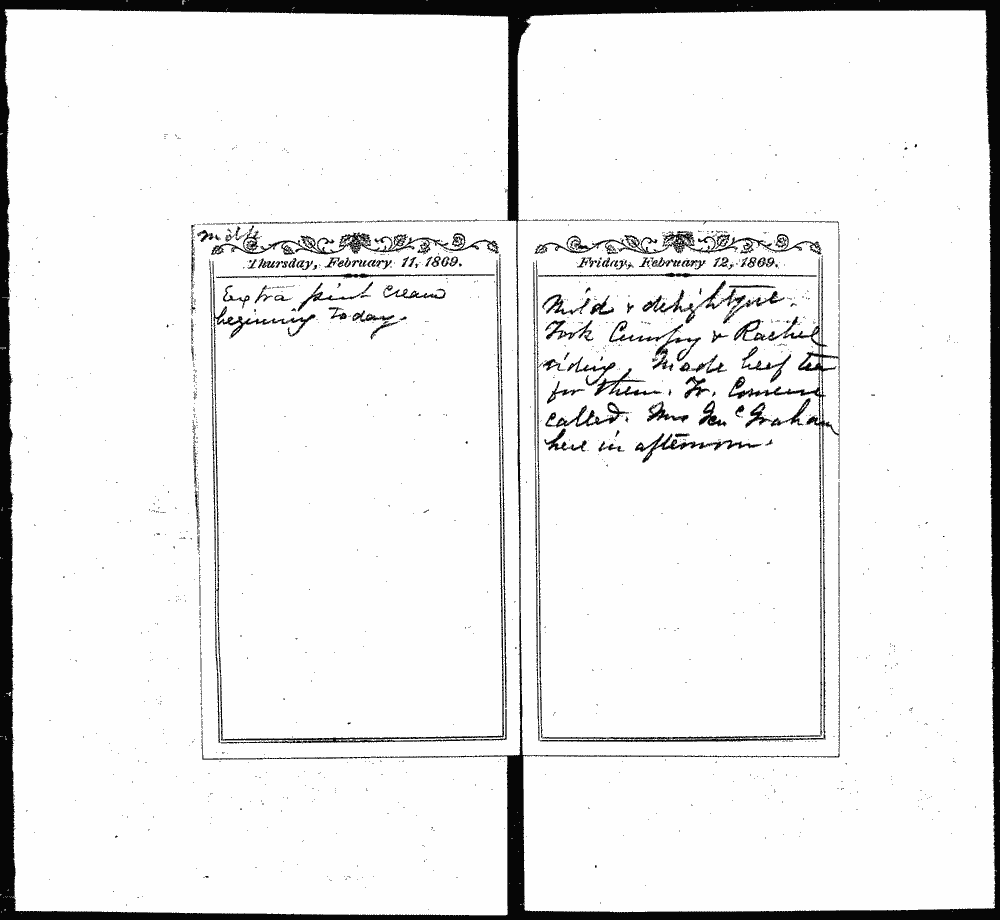 Thursday, February 11, 1869.
Extra pint Cream
beginning Today.
Friday, February 12, 1869.
Mild & delightful.
Took & Rachel
riding. Made beef tea
for them. Dr.
called. Mrs Graham
here in afternoon.